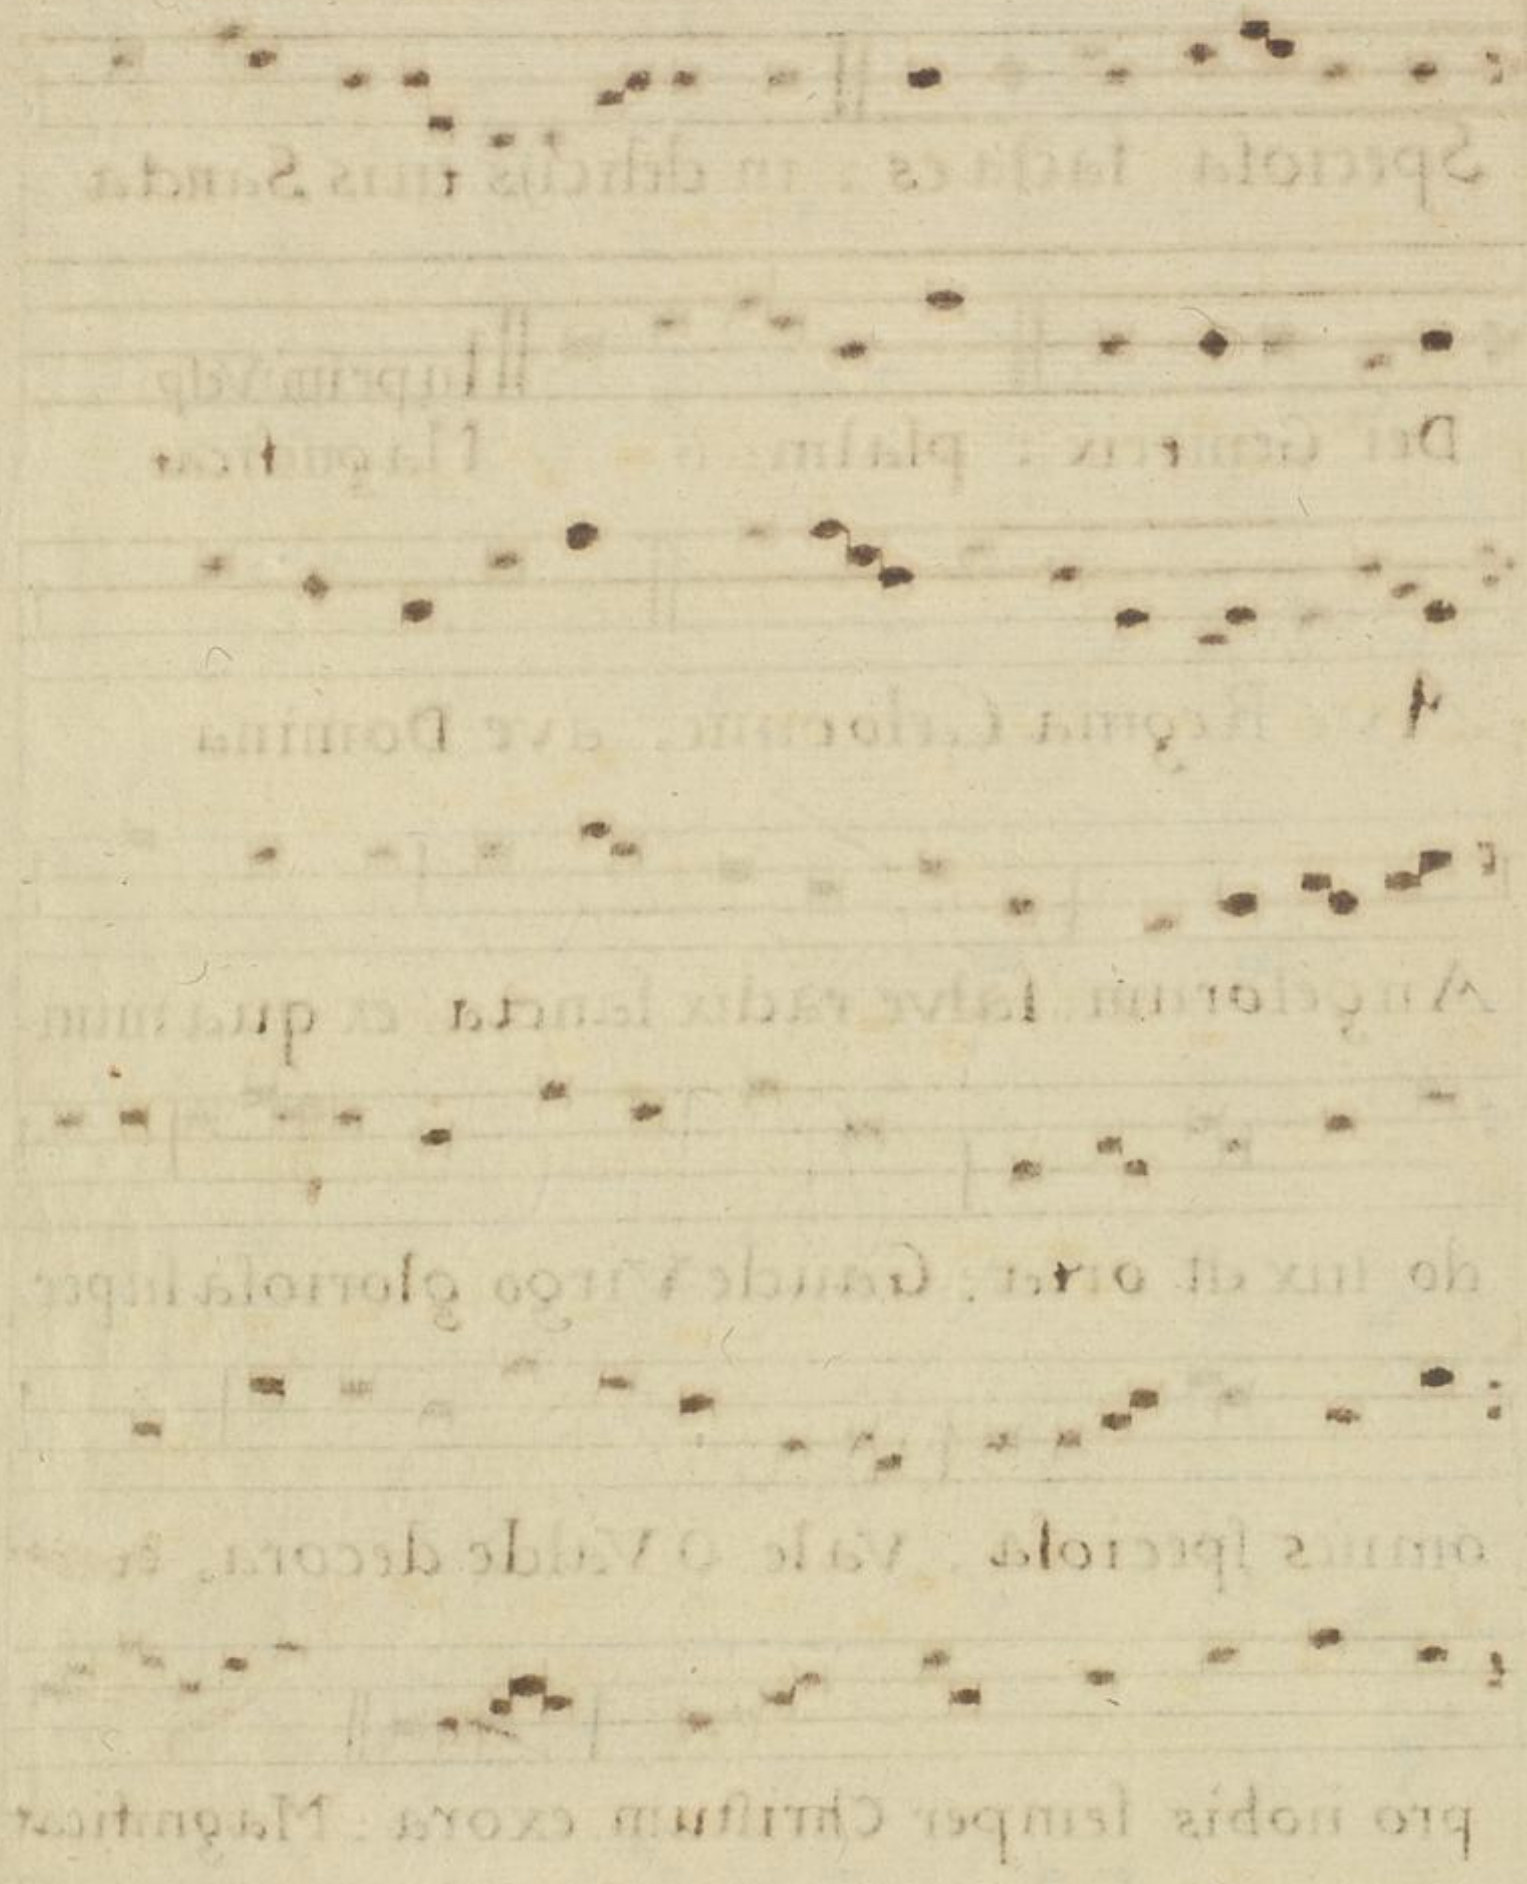 Speciosa facta es : in delicijs tuis Sancta
In prim Vesp
Dei Genitrix : psalm Magnificat
Ave Regina Cælorum, ave Domina
Angelorum salve radix sancta ex qua mun
do lux est orta : Gaude Virgo gloriosa super
omnes speciosa . Vale o Valde decora, &
pro nobis semper Christum exora : Magnificat